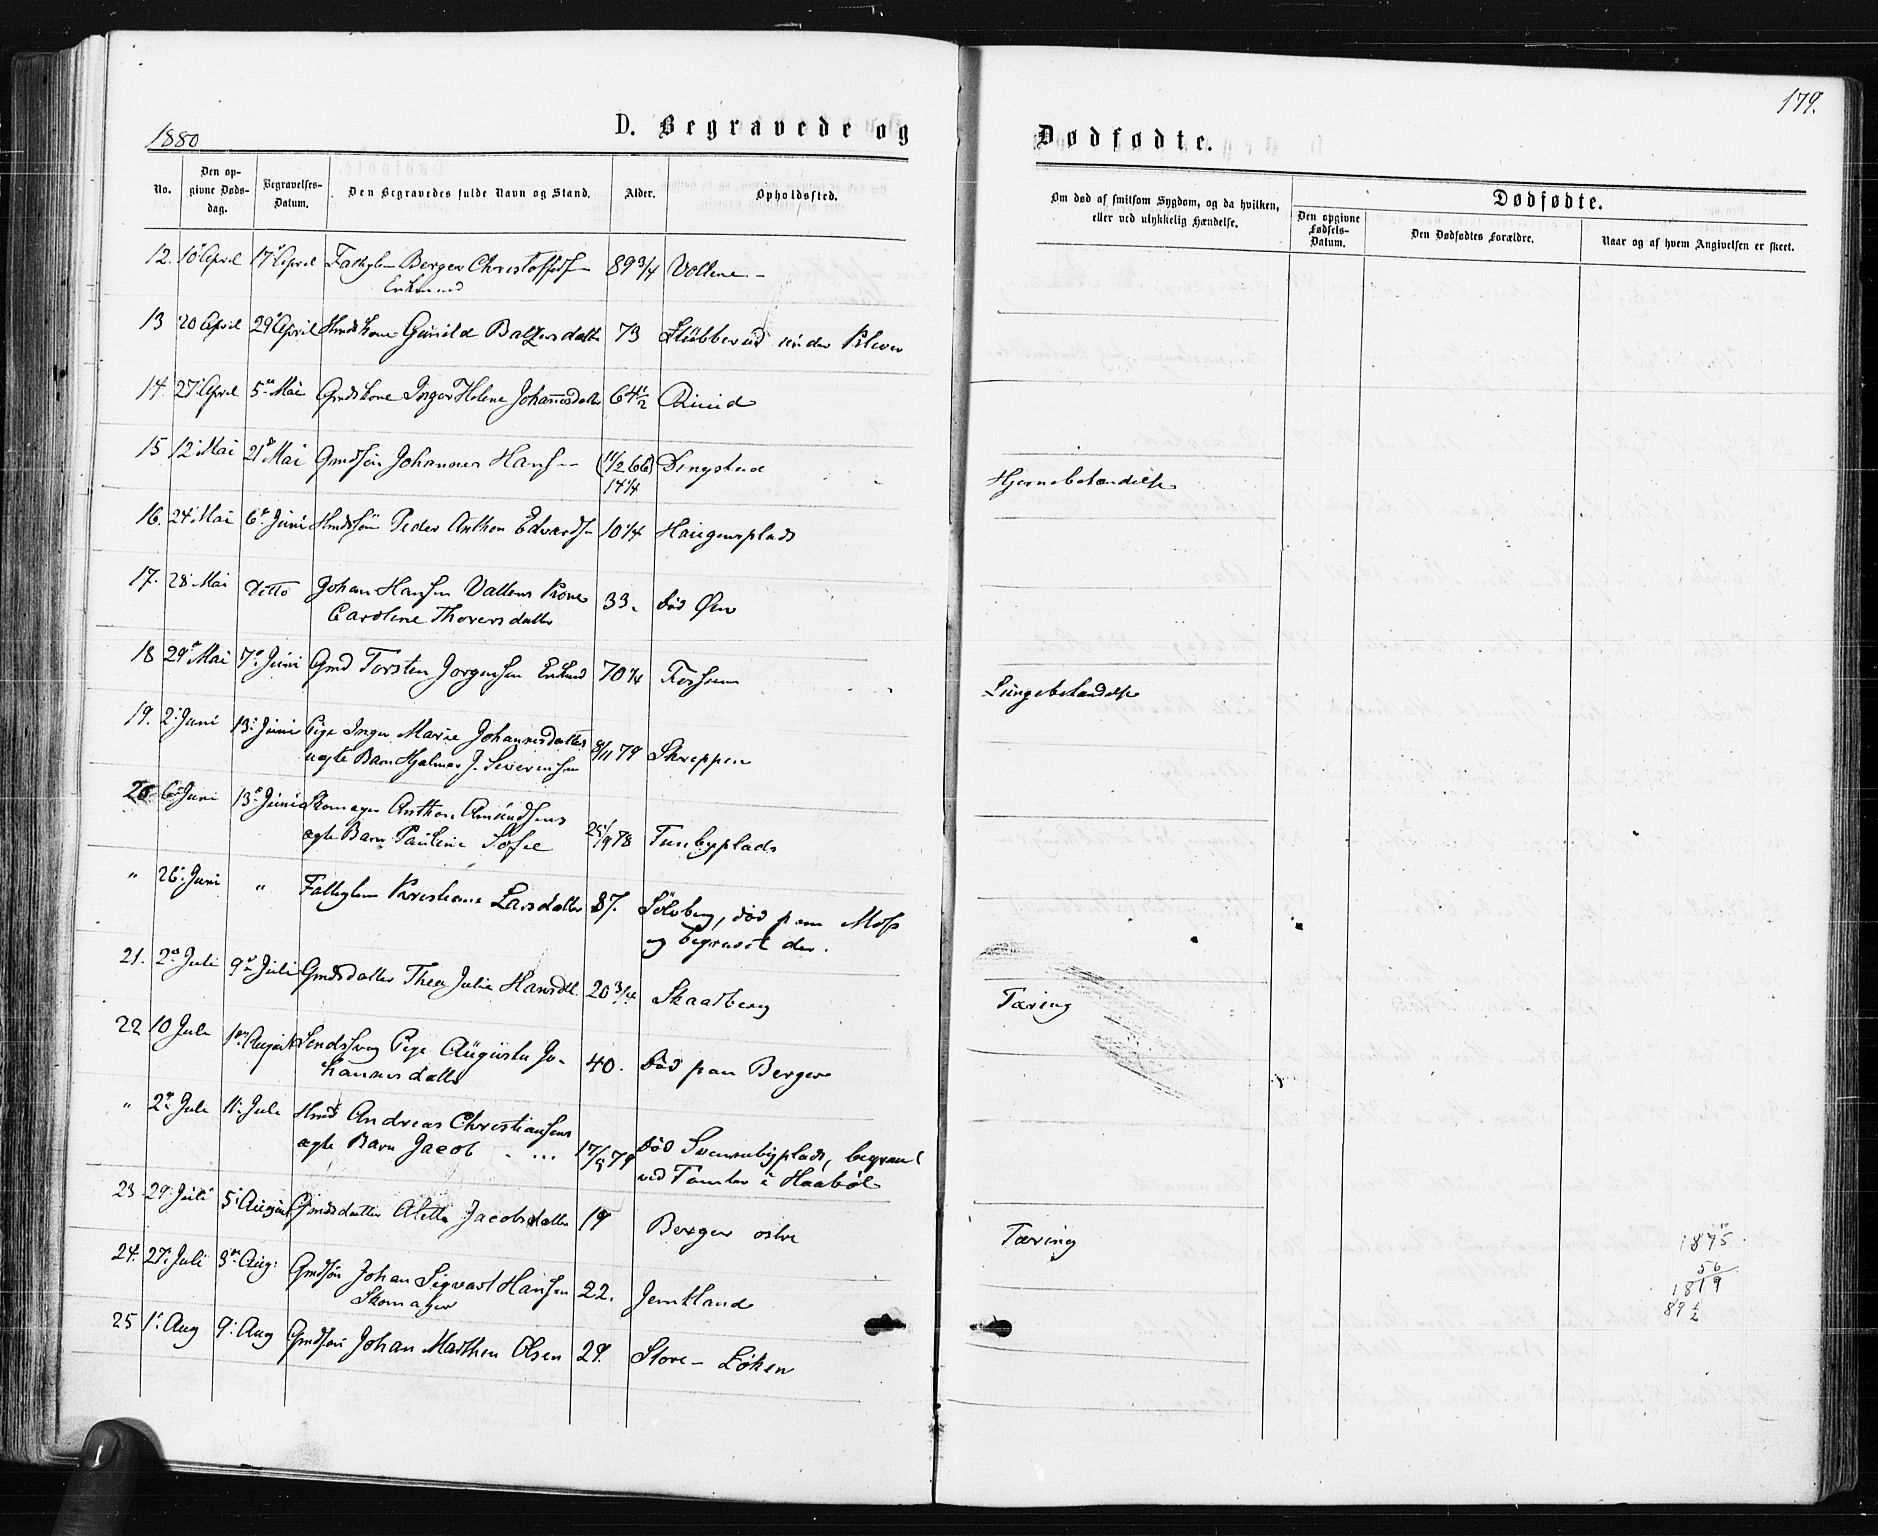 179.
1880
D. Begravede og
Dødfødte.
No.
Den opgivne Dødsdag.
Begravelses-Datum.
Den Begravedes fulde Navn og Stand.
Alder.
Opholdssted.
Om død af smitsom Sygdom, og da hvilken, eller ved ulykkelig Hændelse.
Dødfødte.
Den opgivne Fødsels-Datum.
Den Dødfødtes Forældre.
Naar og af hvem Angivelsen er skeet.
12. 10 April 17 April Berger Christoffers 89 3/4 Vollene
Enkemand
13 20 April 29 April Kone Gunild Balzersdatter 73 under
14. 27 April 5 Mai Gmdskone Inger Helene Johannesdatter 64 1/2
15 12 Mai 21 Mai Gmdsøn Johannes Hans (11/2 66) Dingstad
14 1/4
Hjernebetændelse
16. 24 Mai 6 Juni Husmdsøn Peder Anthon Edvards 10 1/4 Haugenplads
17. 28 Mai Ditto Johan Hansen Kone 33. død Øen
Caroline Thoversdatter
18 29 Mai 7 Juni Gmd Torsten Jørgensen Enkmd 70 1/4 Fossum
Lungebetændelse
19. 2 Juni 13 Juni Pige Inger Marie Johannesdatters
uægte Barn Hjalmar J. Severinsen 8/11 79 Skreppen
20 6 Juni 13 Juni Skomager Anthon Amundsens
ægte Barn Pauline Sofie 25/9 78 Tunbyplads
" 26 Juni " Kristiane Larsdatter 87. Sølvberg, død paa Moss
og begravet der.
21. 2 Juli 9 Juli Gmdsdatter Thea Julie Hansdt. 20 3/4 Skaadberg
Tæring
22 10 Juli 1 August Pige Augusta Jo-
hannesdatter 40. Død paa Berger
" 2 Juli 11 Juli Husmd Andreas Christiansens
ægte Barn Jacob 17/9 79 Død Svennebyplads, begravet
ved Tomter i Haabøl
23 29 Juli 5 August Gmdsdatter Aletta Jacobsdatter 19 Berger østre
Tæring
24. 27 Juli 9 Aug: Gmdsøn Johan Sigvart Hansen 22. Jemtland
Skomager
25 1 Aug 9 Aug Gmdsøn Johan Marthin Olsen 29. Store-Løken
1875
56
1819
89 1/2